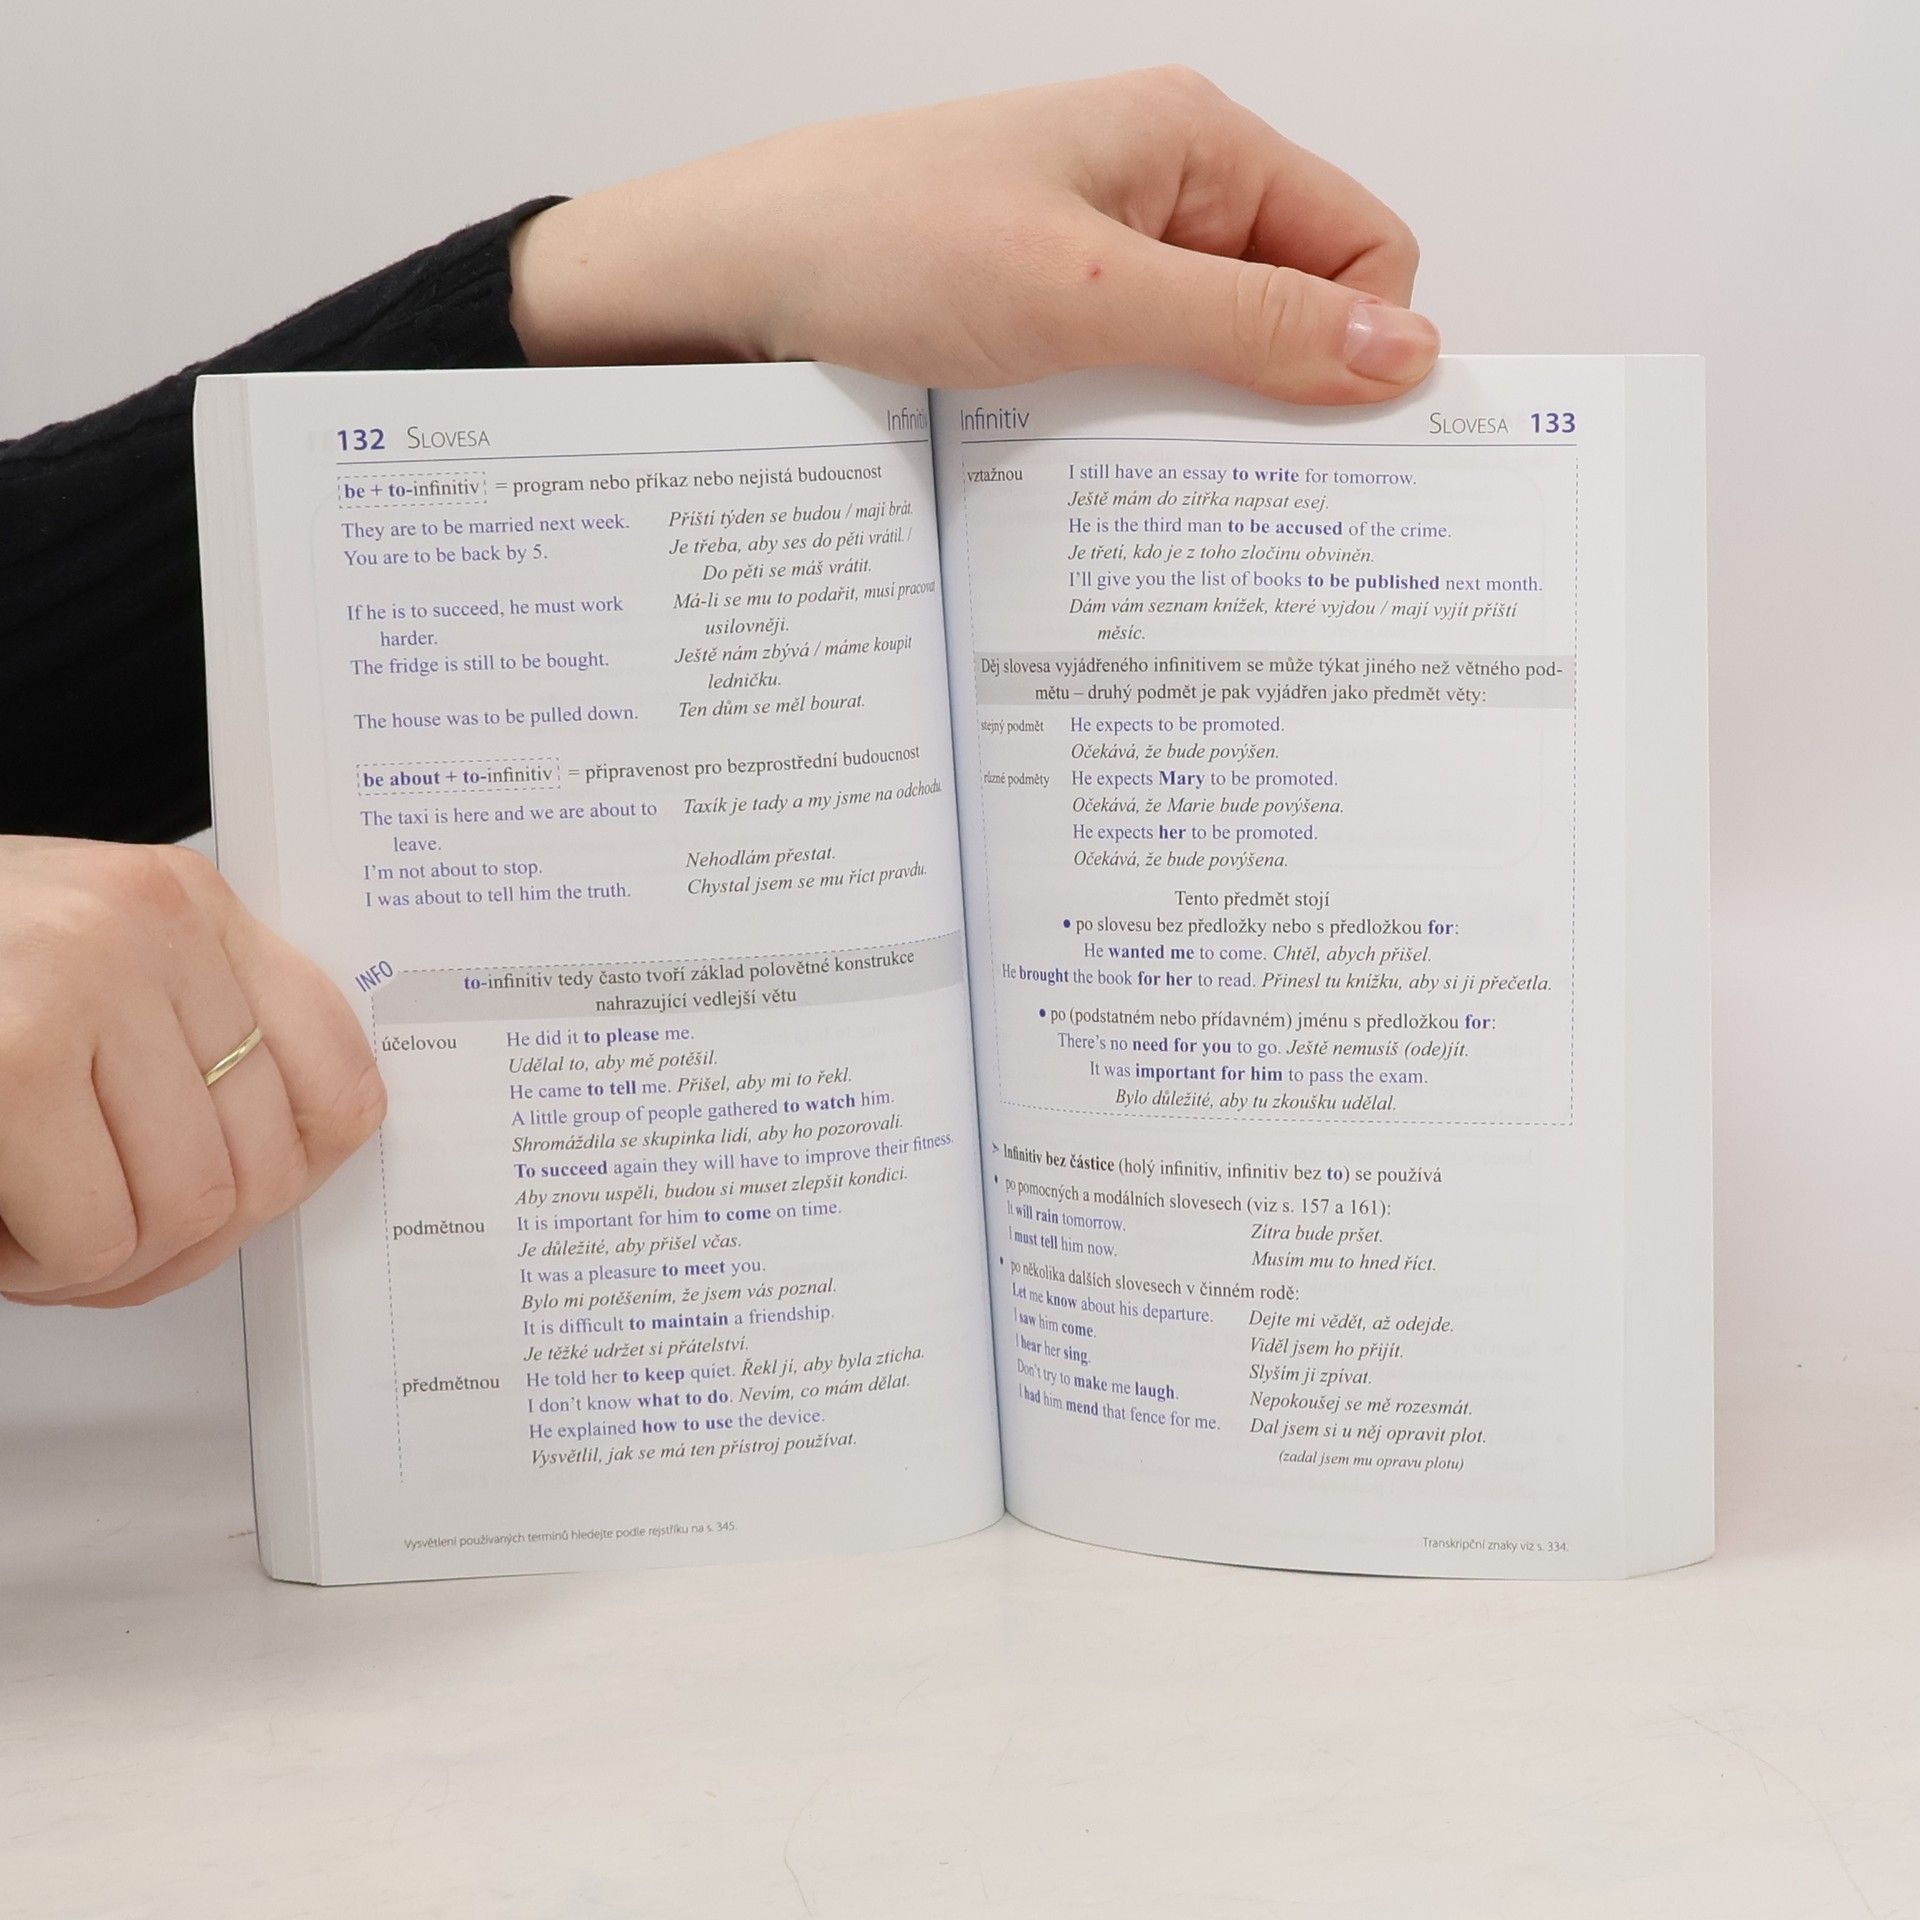 132 SLOVESA Infiniti
be + to-infinitiv = program nebo příkaz nebo nejistá budoucnost
They are to be married next week. Příští týden se budou / mají brát.
You are to be back by 5. Je třeba, aby ses do pěti vrátil. /
Do pěti se máš vrátit.
If he is to succeed, he must work Má-li se mu to podařit, musí pracovat
harder. usilovněji.
The fridge is still to be bought. Ještě nám zbývá / máme koupit
ledničku.
The house was to be pulled down. Ten dům se měl bourat.
be about + to-infinitiv = připravenost pro bezprostřední budoucnost
The taxi is here and we are about to Taxík je tady a my jsme na odchodu.
leave.
I'm not about to stop. Nehodlám přestat.
I was about to tell him the truth. Chystal jsem se mu říct pravdu.
INFO
to-infinitiv tedy často tvoří základ polovětné konstrukce
nahrazující vedlejší větu
účelovou He did it to please me.
Udělal to, aby mě potěšil.
He came to tell me. Přišel, aby mi to řekl.
A little group of people gathered to watch him.
Shromáždila se skupinka lidí, aby ho pozorovali.
To succeed again they will have to improve their fitness.
Aby znovu uspěli, budou si muset zlepšit kondici.
podmětnou It is important for him to come on time.
Je důležité, aby přišel včas.
It was a pleasure to meet you.
Bylo mi potěšením, že jsem vás poznal.
It is difficult to maintain a friendship.
Je těžké udržet si přátelství.
předmětnou He told her to keep quiet. Řekl jí, aby byla zticha.
I don't know what to do. Nevím, co mám dělat.
He explained how to use the device.
Vysvětlil, jak se má ten přístroj používat.
Vysvětlení používaných termínů hledejte podle rejstříku na s. 345.
Infinitiv SLOVESA 133
vztažnou I still have an essay to write for tomorrow.
Ještě mám do zítřka napsat esej.
He is the third man to be accused of the crime.
Je třetí, kdo je z toho zločinu obviněn.
I'll give you the list of books to be published next month.
Dám vám seznam knížek, které vyjdou / mají vyjít příští
měsíc.
Děj slovesa vyjádřeného infinitivem se může týkat jiného než větného pod-
mětu – druhý podmět je pak vyjádřen jako předmět věty:
stejný podmět He expects to be promoted.
Očekává, že bude povýšen.
různé podměty He expects Mary to be promoted.
Očekává, že Marie bude povýšena.
He expects her to be promoted.
Očekává, že bude povýšena.
Tento předmět stojí
• po slovesu bez předložky nebo s předložkou for:
He wanted me to come. Chtěl, abych přišel.
He brought the book for her to read. Přinesl tu knížku, aby si ji přečetla.
• po (podstatném nebo přídavném) jménu s předložkou for:
There's no need for you to go. Ještě nemusíš (ode)jít.
It was important for him to pass the exam.
Bylo důležité, aby tu zkoušku udělal.
➤ Infinitiv bez částice (holý infinitiv, infinitiv bez to) se používá
• po pomocných a modálních slovesech (viz s. 157 a 161):
It will rain tomorrow. Zítra bude pršet.
I must tell him now. Musím mu to hned říct.
• po několika dalších slovesech v činném rodě:
Let me know about his departure. Dejte mi vědět, až odejde.
I saw him come. Viděl jsem ho přijít.
I hear her sing. Slyším ji zpívat.
Don't try to make me laugh. Nepokoušej se mě rozesmát.
I had him mend that fence for me. Dal jsem si u něj opravit plot.
(zadal jsem mu opravu plotu)
Transkripční znaky viz s. 334.